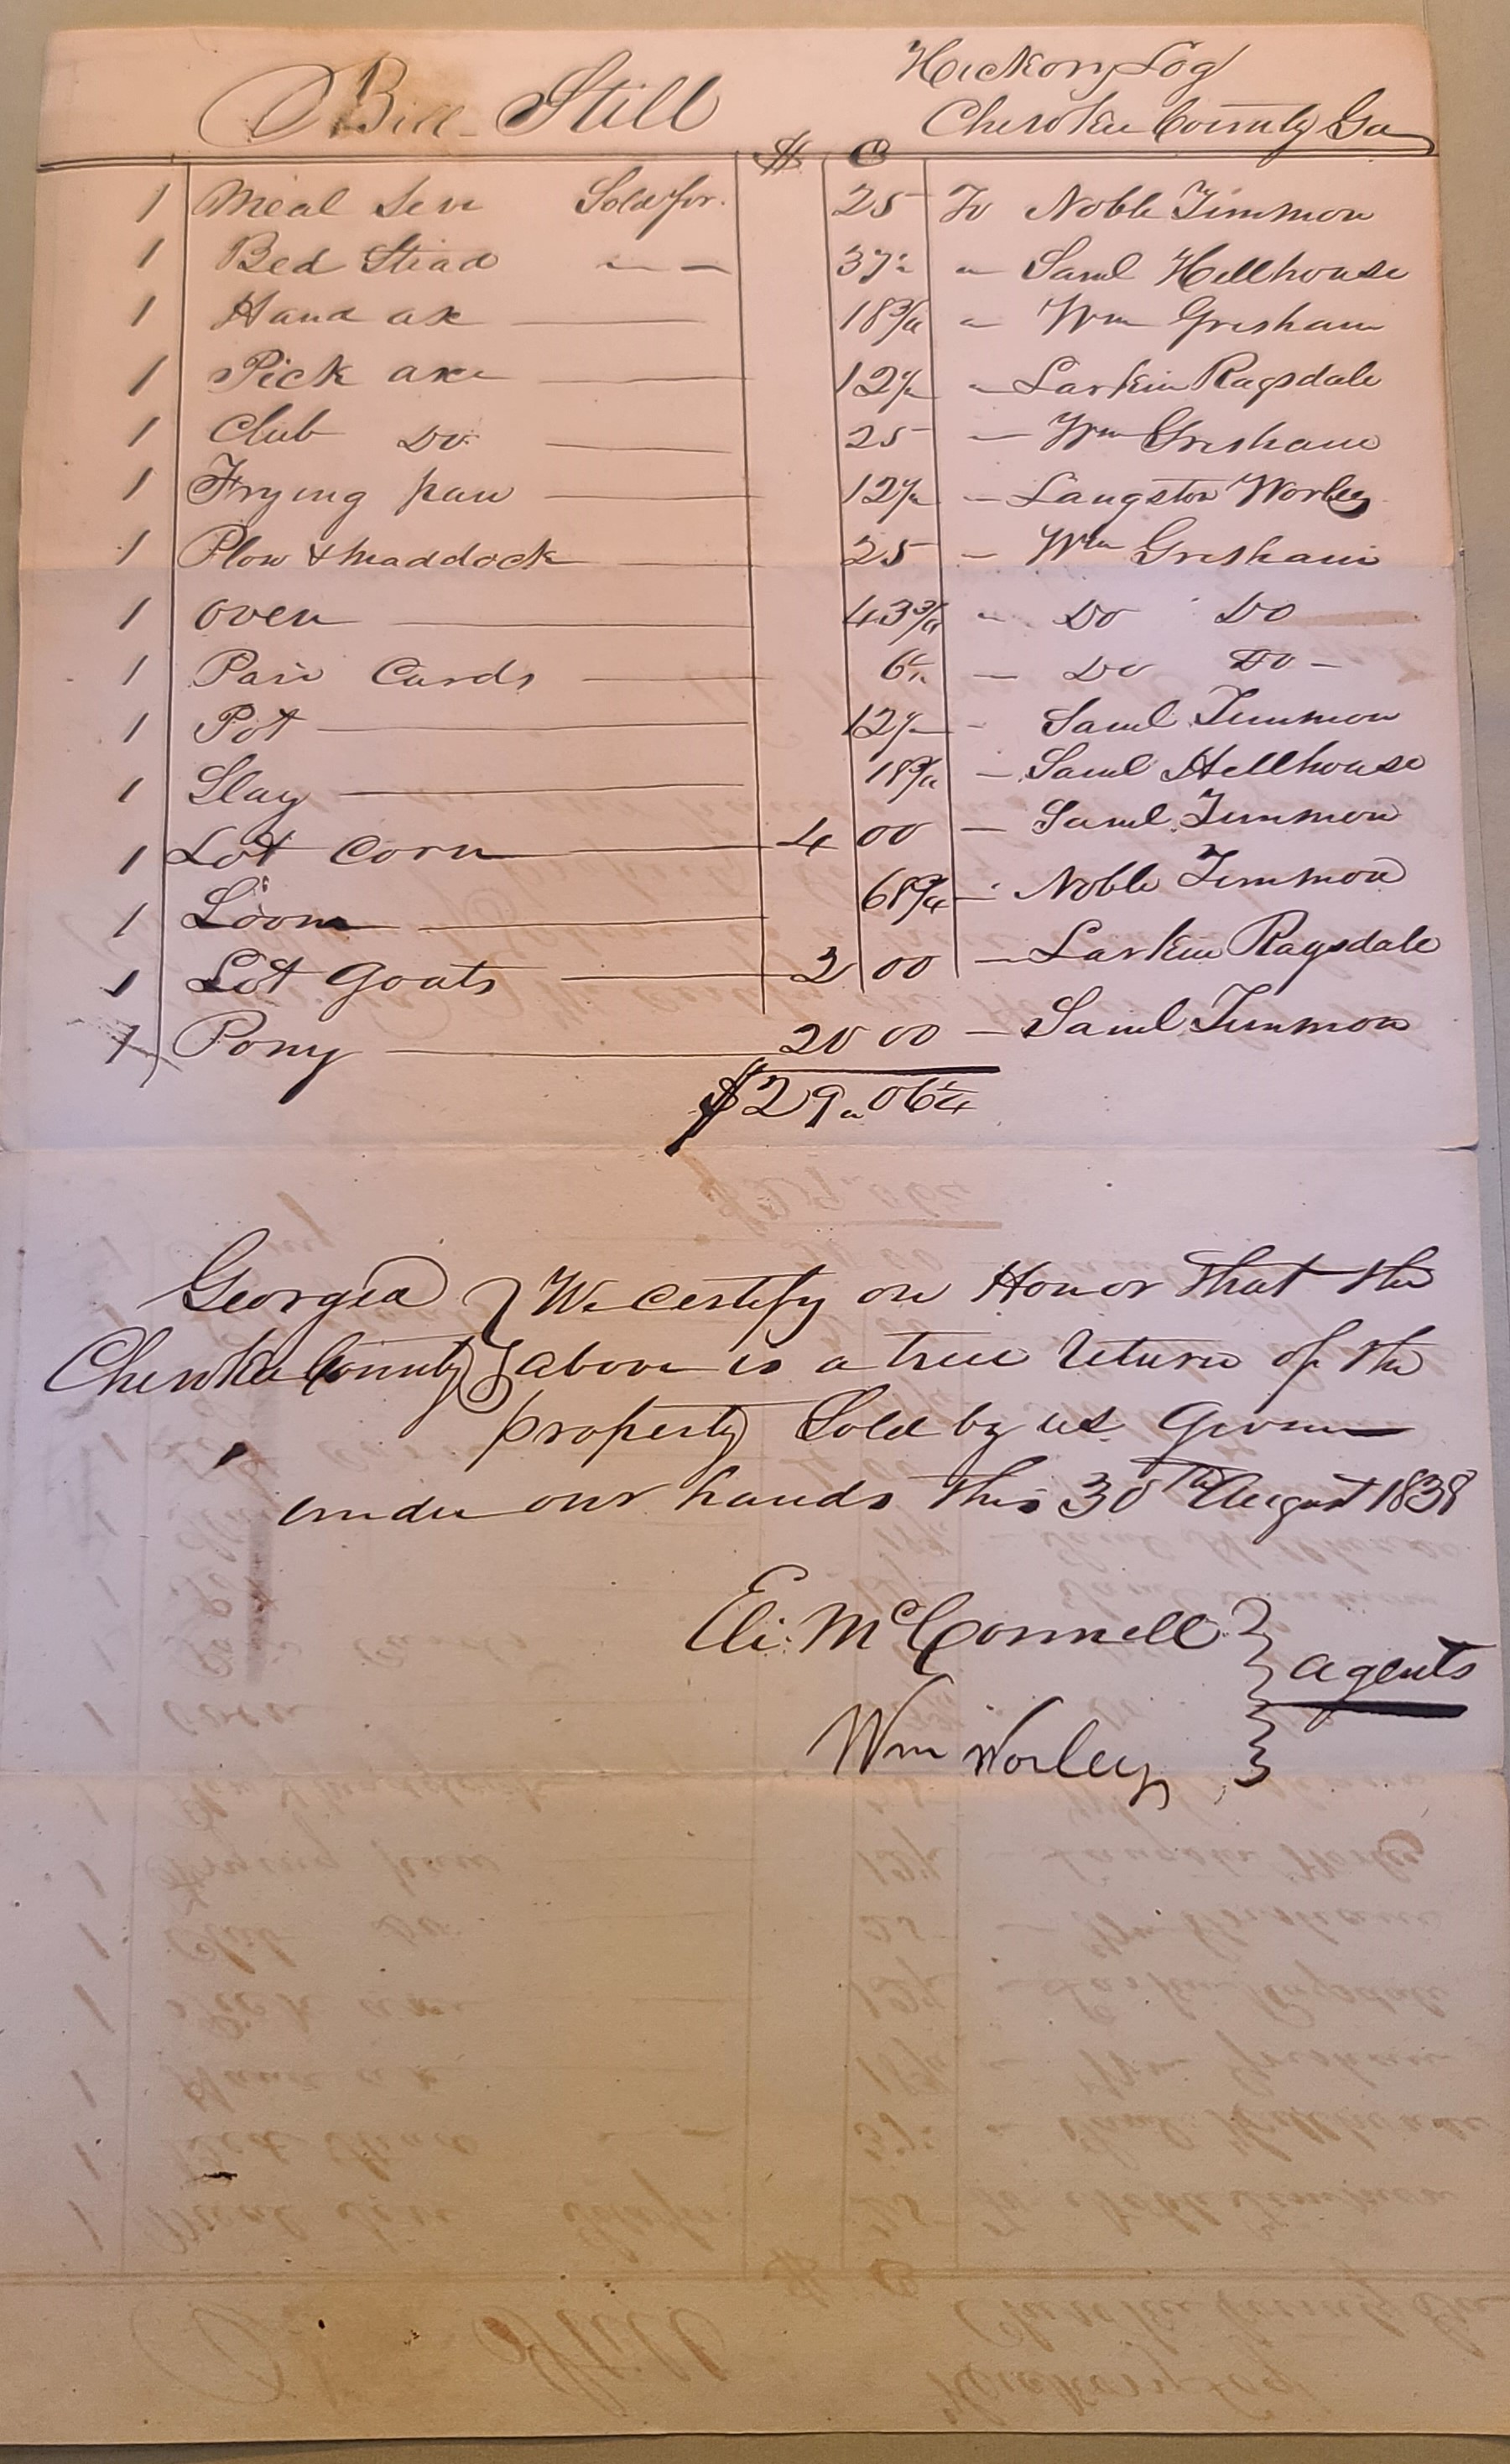 Bill Still
Hickory Log
Cherokee County Ga
$ C
1 Meal Seve Sold for 25 To Noble Timmon
1 Bed Stead " — 37½ " Saml Hellhouse
1 Hand ax — 18¾ " Wm Gresham
1 Pick axe — 12½ " Larkin Ragsdale
1 Club Do — 25 — Wm Gresham
1 Frying pan — 12½ — Langston Worley
1 Plow & maddock — 25 — Wm Gresham
1 oven — 43¾ " Do Do
1 Pair Cards — 6¼ — Do Do —
1 Pot — 12½ — Saml Timmon
1 Slay — 18¾ — Saml Hellhouse
1 Lot Corn — 4 00 — Saml Timmon
1 Loom — 68¾ — Noble Timmon
1 Lot Goats — 2 00 — Larkin Ragsdale
1 Pony — 20 00 — Saml Timmon
$29.06¼
Georgia } We certify on Honor that the
Cherokee County } above is a true return of the
property Sold by us Given
under our hands this 30th August 1838
Eli McConnell } agents
Wm Worley }